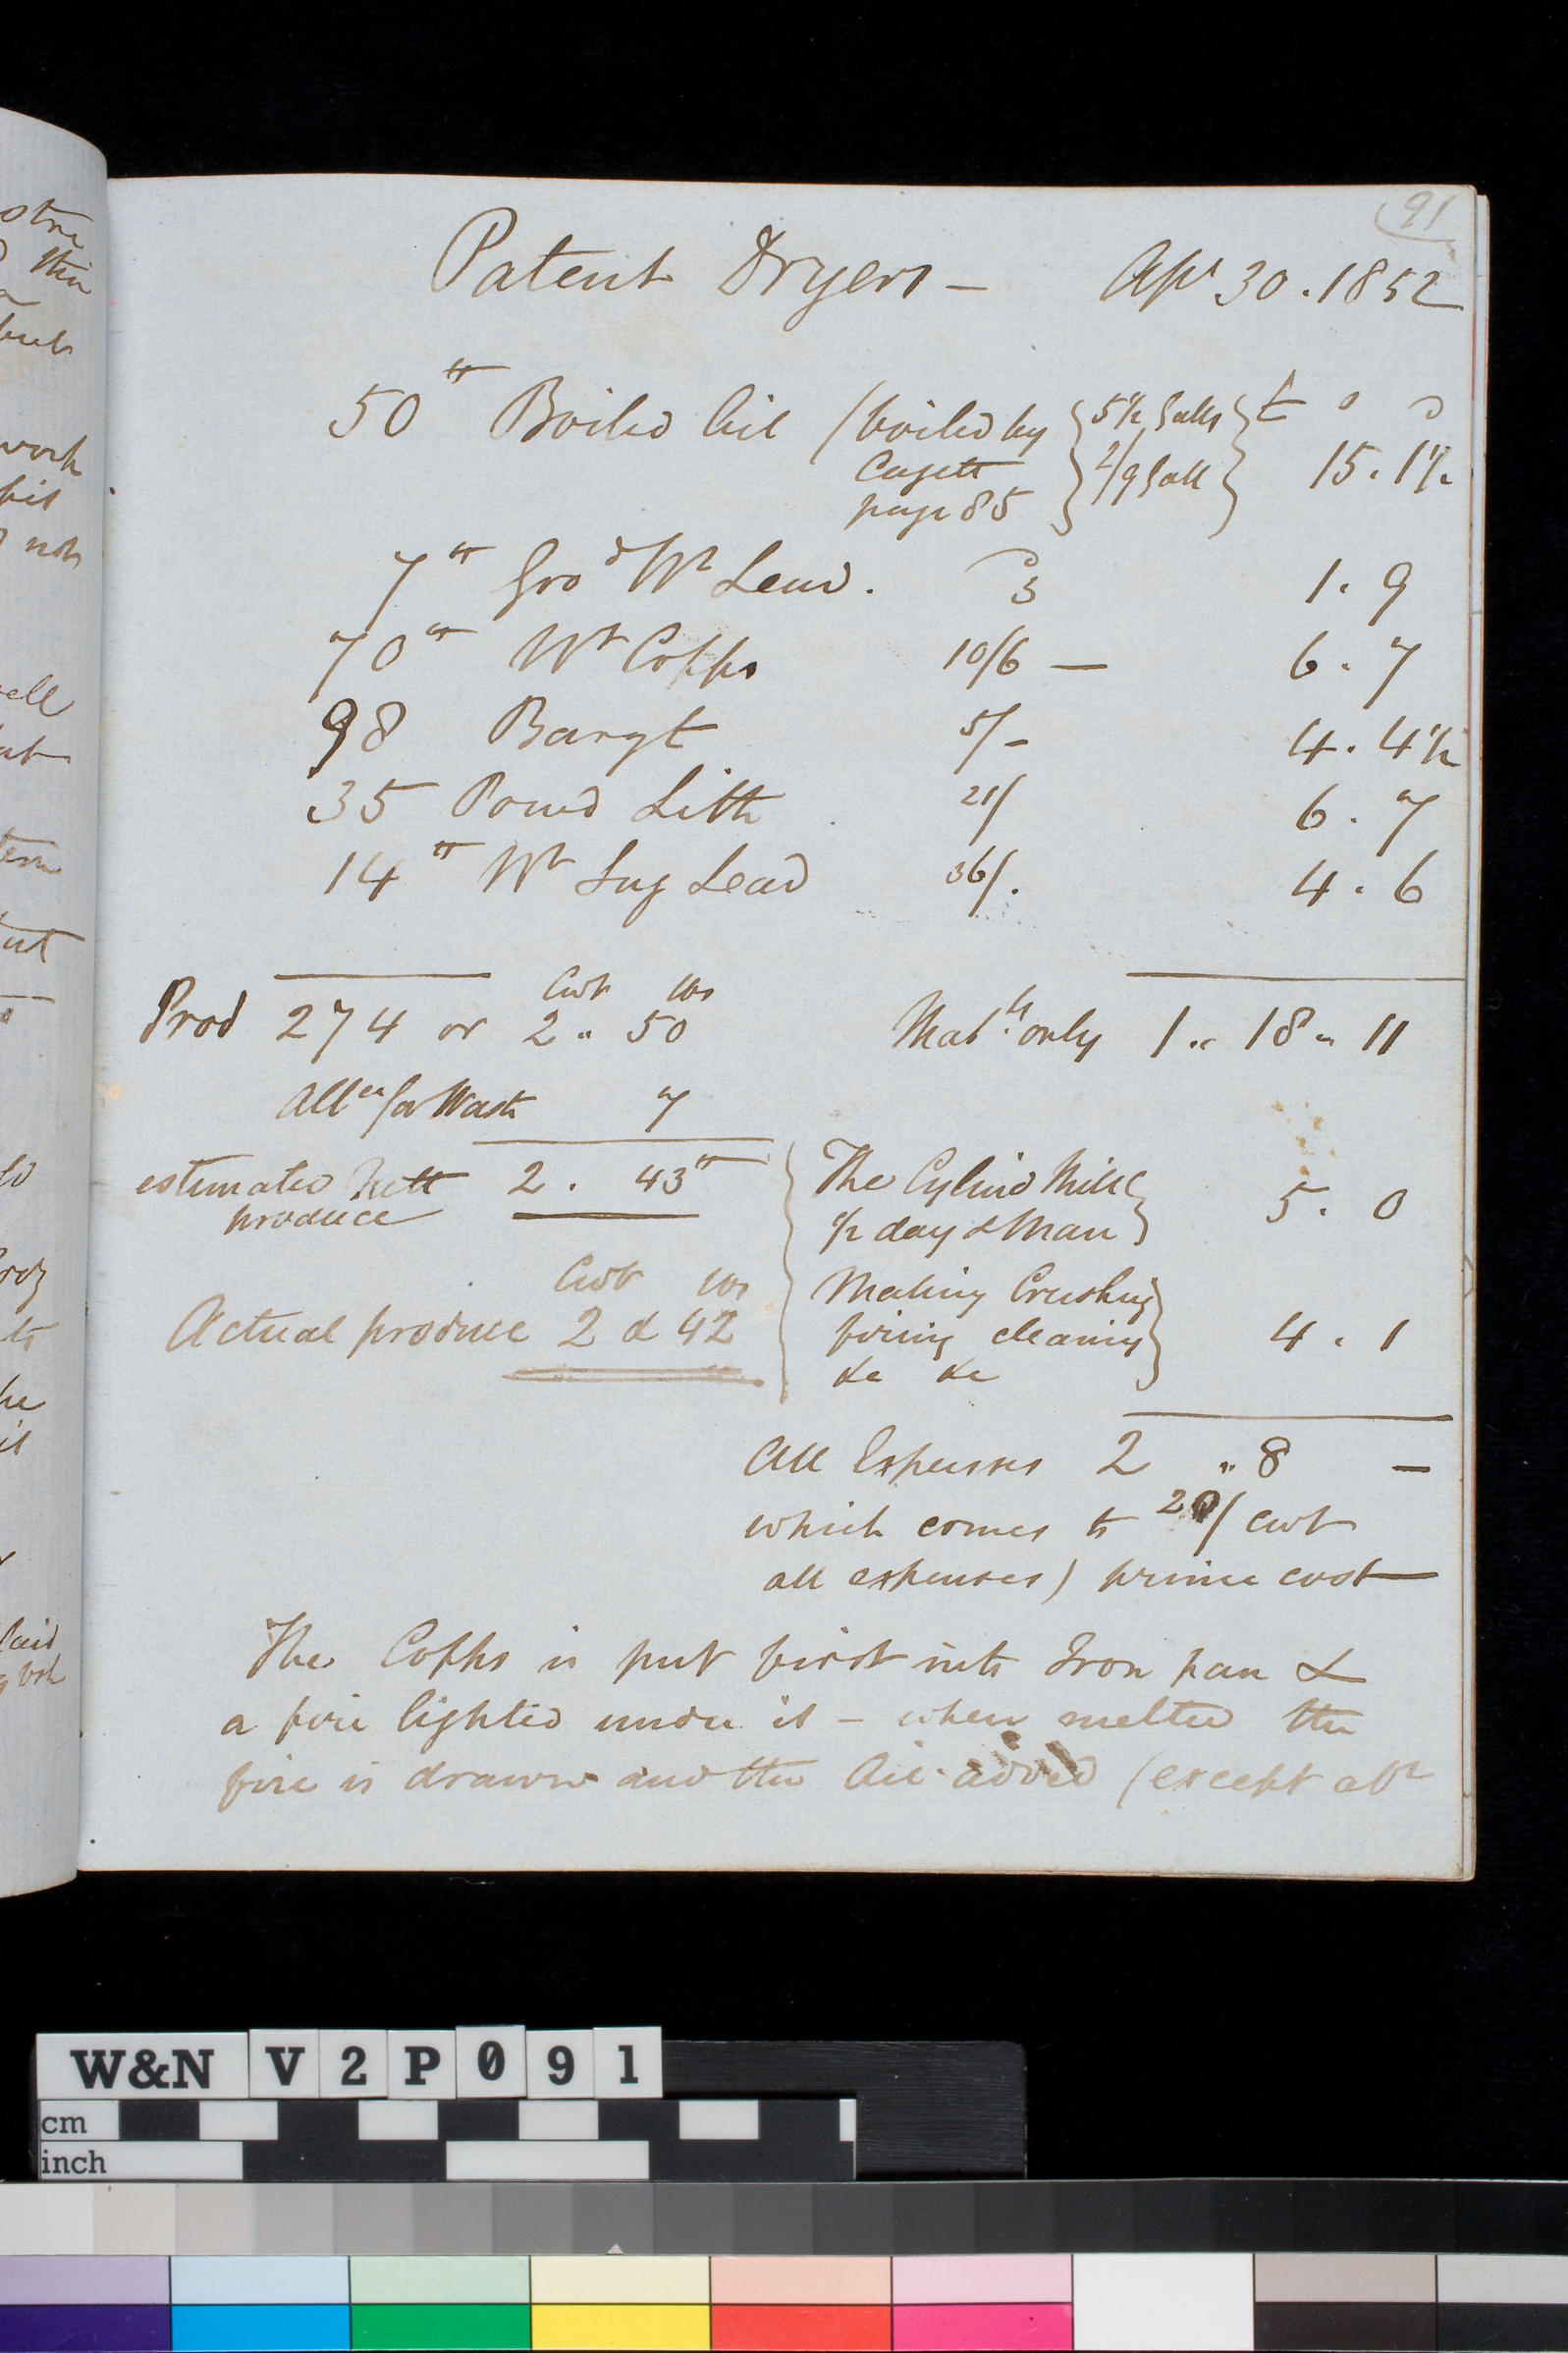 91
Patent Dryers — Apl 30 . 1852
50 lb Boiled Oil (boiled by 5½ Galls £ s d
page 85 2/9 Gall 15 . 1½
7 lb Grod Wt Lead . 3d 1 . 9
70 lb Wt Copps 10/6 — 6 . 7
98 Baryt 5/- 4 . 4½
35 Powd Lith 21/ 6 . 7
14 lb Wt Sug Lead 36/. 4 . 6
Cwt lbs
Prod 274 or 2 .. 50 Matls only 1 .. 18 .. 11
Allce for Waste 7
estimated Nett 2 . 43 lb The Cylind Mill
produce ½ day & Man 5 . 0
Cwt lbs Making Crushing
Actual produce 2 & 42 firing cleaning 4 . 1
&c &c
All Expenses 2 .. 8 —
which comes to 20/ cwt
all expenses) prime cost —
The Copps is put first into Iron pan &
a fire lighted under it — when melted the
fire is drawn and the Oil added (except abt
W&N V2P091
cm
inch